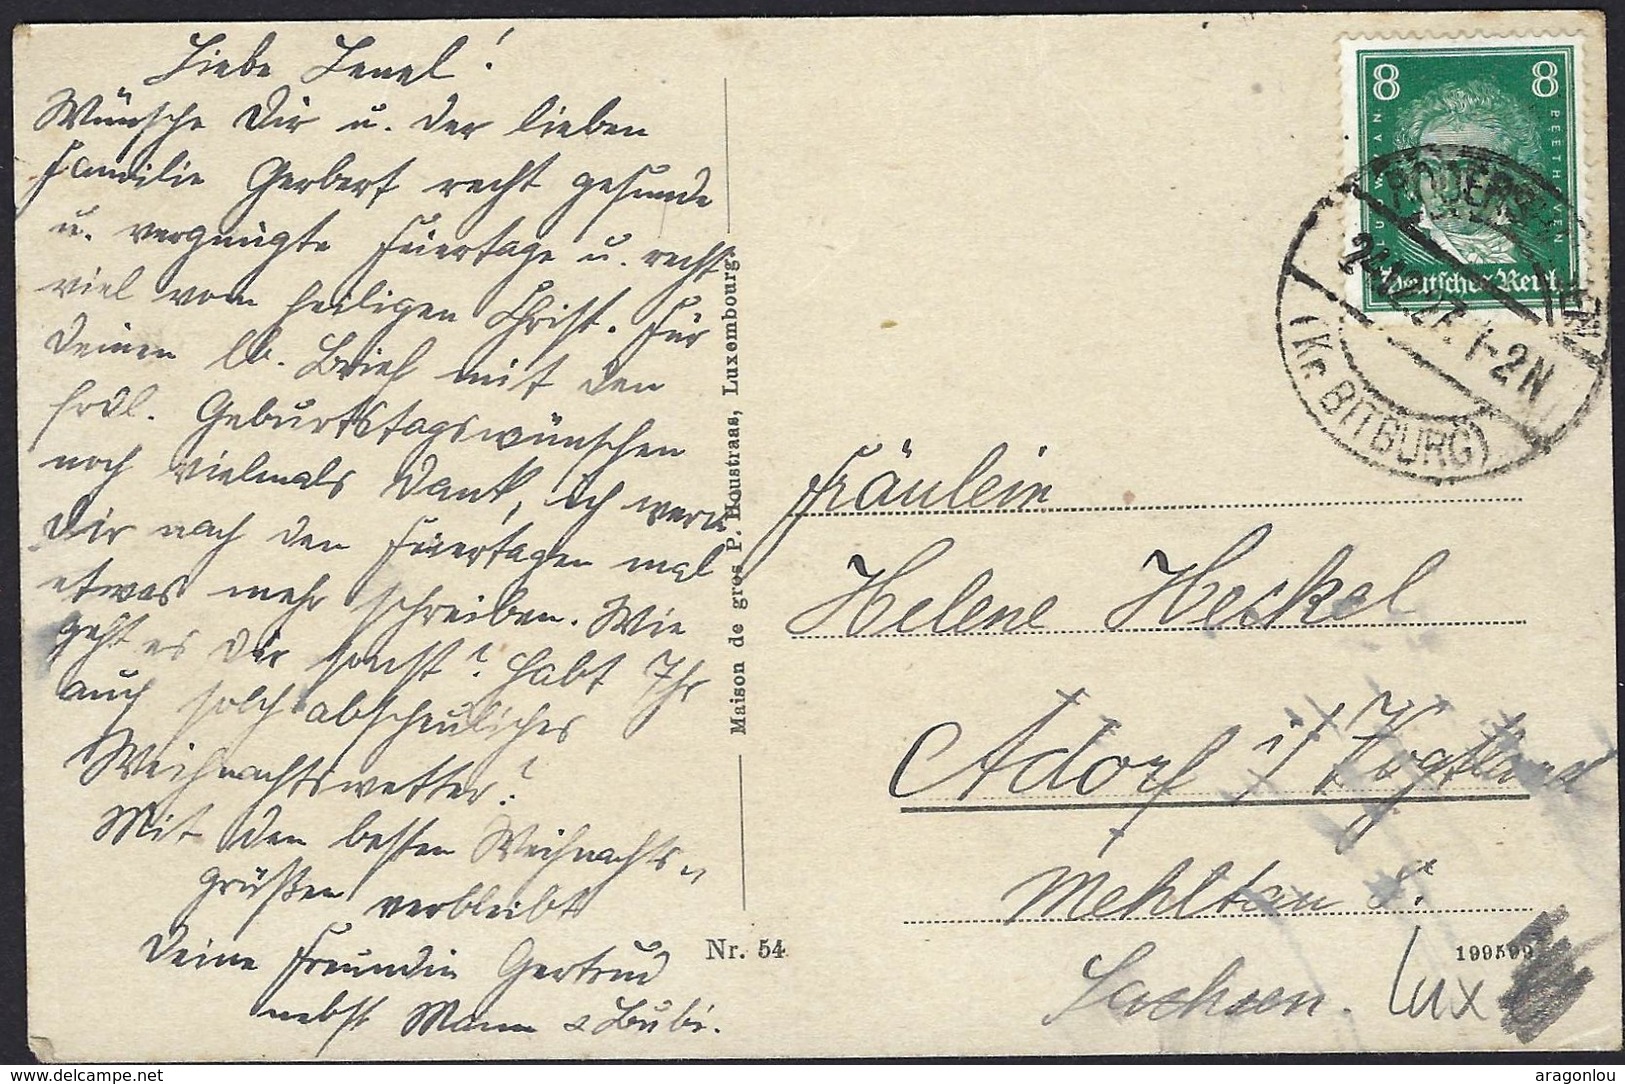 Liebe Lenel!
Wünsche Dir u. der lieben
Familie Gerbert recht gesunde
u. vergnügte Feiertage u. recht
viel vom heiligen Christ. Für
Deinen lb. Brief mit den
frdl. Geburtstagswünschen
noch vielmals Dank, ich werde
Dir nach den Feiertagen mal
etwas mehr schreiben. Wie
geht es Dir sonst? Habt Ihr
auch solch abscheuliches
Weihnachtswetter?
Mit den besten Weihnachts-
grüßen verbleibt
Deine Freundin Gertrud
nebst Mann & Bubi.
Maison de gros P. Houstraas, Luxembourg.
Nr. 54
8 8
LUDWIG VAN BEETHOVEN
Deutsches Reich
24.12.27. 1-2N
(Kr. BITBURG)
Fräulein
Helene Heckel
Adorf i/ Vogtland
Sachsen.
199599
Lux
aragonlou